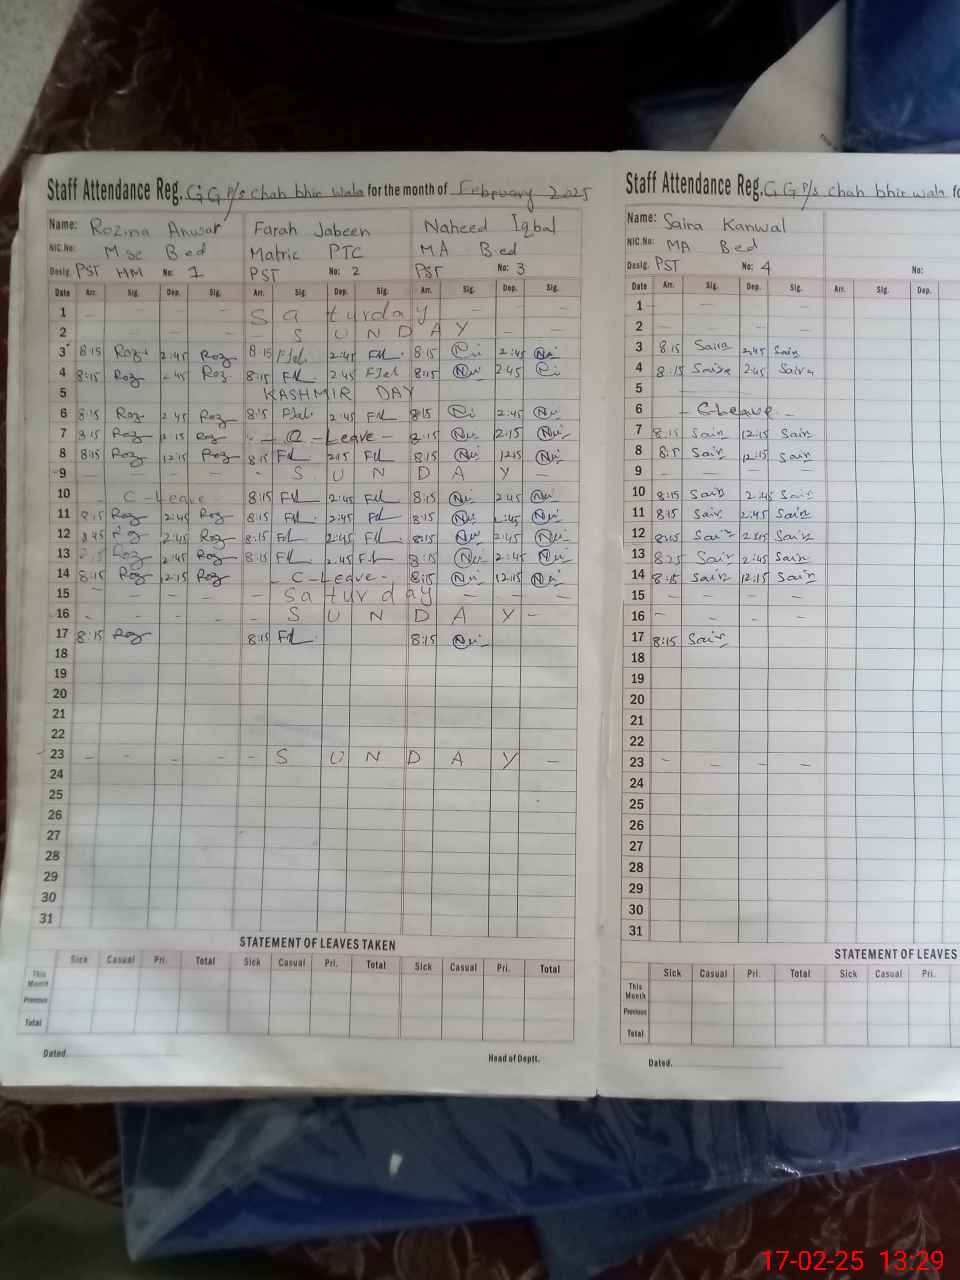 Staff Attendance Reg. G G P/s chah bhir wala for the month of February 2025
Name: Rozina Anwar Farah Jabeen Naheed Iqbal
NIC.No: Msc Bed Matric PTC MA Bed
Desig. PST HM No: 1 PST No: 2 PST No: 3
Date Arr. Sig. Dep. Sig. Arr. Sig. Dep. Sig. Arr. Sig. Dep. Sig.
1 - - - - Saturday - -
2 - - - - S U N D A Y - -
3 8:15 Roz 2:45 Roz 8:15 2:45 8:15 2:45
4 8:15 Roz 2:45 Roz 8:15 2:45 8:15 2:45
5 KASHMIR DAY
6 8:15 Roz 2:45 Roz 8:15 2:45 8:15 2:45
7 8:15 Roz 12:15 Roz - C-Leave - 8:15 12:15
8 8:15 Roz 12:15 Roz 8:15 8:15 12:15
9 - - - - - S U N D A Y -
10 - C-Leave 8:15 2:45 8:15 2:45
11 8:15 Roz 2:45 Roz 8:15 2:45 8:15 2:45
12 Roz 2:45 Roz 8:15 2:45 8:15 2:45
13 Roz 2:45 Roz 8:15 2:45 8:15 2:45
14 8:15 Roz 12:15 Roz - C-Leave - 8:15 12:15
15 - - - - - Saturday - - -
16 - - - - - S U N D A Y -
17 8:15 Roz 8:15 8:15
18
19
20
21
22
23 - - - - - S U N D A Y -
24
25
26
27
28
29
30
31
STATEMENT OF LEAVES TAKEN
Sick Casual Pri. Total Sick Casual Pri. Total Sick Casual Pri. Total
This Month
Previous
Total
Dated. Head of Deptt.
Staff Attendance Reg. G G P/s chah bhir wala
Name: Saira Kanwal
NIC.No: MA Bed
Desig. PST No: 4 No:
Date Arr. Sig. Dep. Sig. Arr. Sig. Dep.
1 - - - -
2 - - - -
3 8:15 Saira 2:45 Saira
4 8:15 Saira 2:45 Saira
5 - - - -
6 - C-leave -
7 8:15 Saira 12:15 Saira
8 8:15 Saira 12:15 Saira
9 - - - -
10 8:15 Saira 2:45 Saira
11 8:15 Saira 2:45 Saira
12 8:15 Saira 2:45 Saira
13 Saira 2:45 Saira
14 8:15 Saira 12:15 Saira
15 - - - -
16 - - - -
17 8:15 Saira
18
19
20
21
22
23 - - - -
24
25
26
27
28
29
30
31
STATEMENT OF LEAVES
Sick Casual Pri. Total Sick Casual Pri.
This Month
Previous
Total
Dated.
17-02-25 13:29